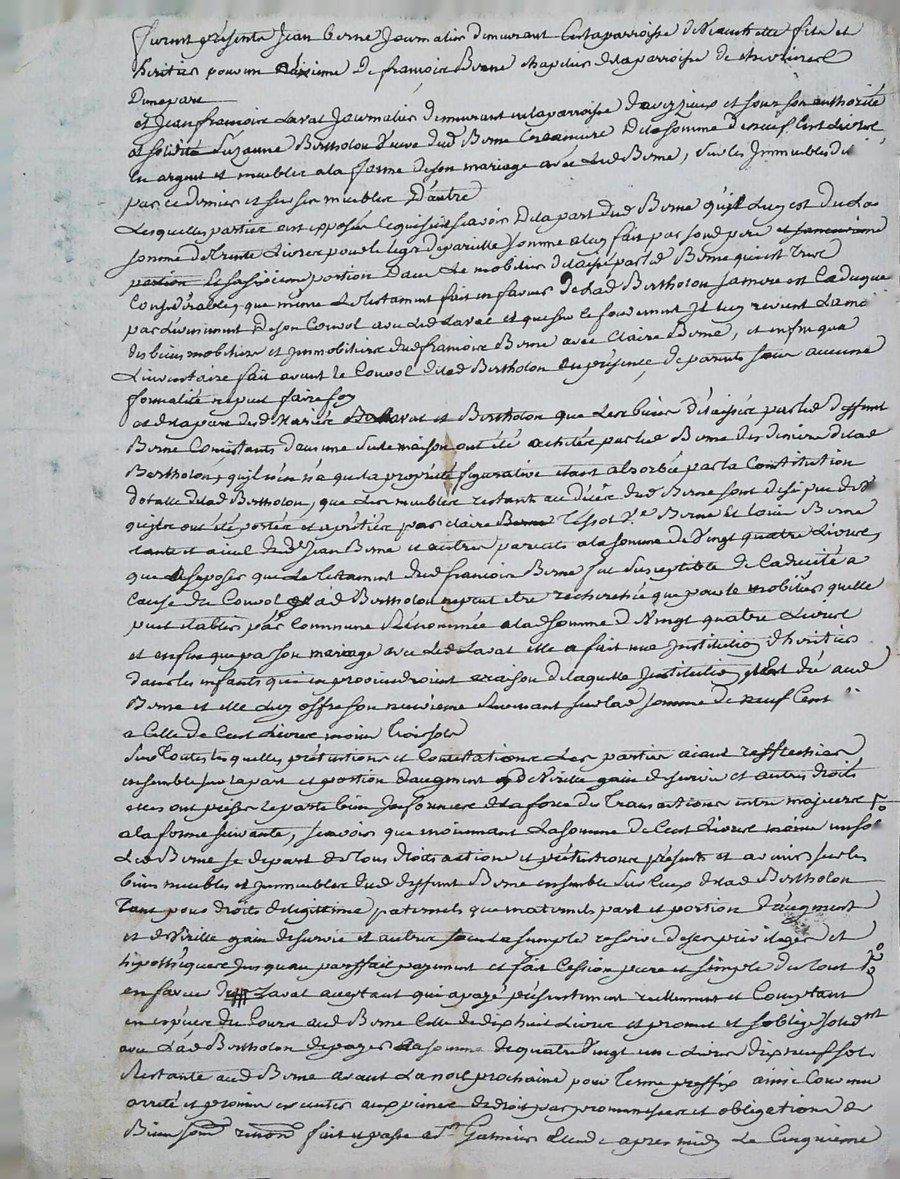 furent présents Jean Berne Journalier demeurant en la parroisse de fils et
héritier pour un de françois Berne chapelier de la parroisse de
D'une part
et Jean françois Laval Journalier demeurant en la parroisse d'aveyzieux et sous son authorité
et solidité Suzanne Bertholon veuve dud Berne de la somme de neuf Cent Livres
en argent et meubles a la forme de son mariage avec led Berne, sur les Immeubles
par ce dernier et sur ses meubles D'autre
Lesquelles parties ont exposé ce qui suit scavoir De la part dud Berne qu'il luy est du La
somme de Trente Livres pour le legs de pareille somme a luy fait par son d père et
portion Et sa portion Dans Le mobilier délaissé par led Berne qui est Tres
Considérable, que même Le testament fait en faveur De lad Bertholon sa mere est Caduque
par L'evenement De son Convol avec Led Laval et que sur le fondement Il luy revient La
des biens mobiliers et Immobiliers dud françois Berne avec Claire Berne, et enfin que
L'inventaire fait avant le Convol de lad Bertholon en présence de parents sans aucune
formalité ne peut faire foy
et de la part des d Mariés Laval et Bertholon que Les biens délaissés par led deffunt
Berne Consistants dans une seule maison ont été achetés par led Berne des deniers de lad
Bertholon, qu'il n'en n'a que la propriété figurative etant absorbée par la Constitution
dotalle de lad Bertholon, que Les meubles restants au décès dud Berne sont de si peu de
qu'ils ont été portés et apretiés par claire Tessot Ve Berne Et Louis Berne
tante et aieul dud Jean Berne et autres parents a la somme de Vingt quatre Livres,
que suposer que Le Testament dud françois Berne fut susceptible de Caducité a
cause du Convol lad Bertholon ne peut etre recherchée que pour le mobilier qu'elle
peut etablir par Commune Rénommée a lad somme De Vingt quatre Livres
et enfin que par son mariage avec Led Laval elle a fait une Institution d'heritier
dans les enfants qui en proviendroient a raison de laquelle Institution, est dû aud
Berne et elle Luy offre son neuvième Revenant sur lad somme de neuf Cent
a Celle de Cent Livres moins Trois sols
Sur Toutes lesquelles prétentions et Contestations Les parties aiant refflechies
ensemble sur la part et portion d'augment de Virille gain de survie et autres droits
elles ont passé Le parte bien Informées de la force des Transactions entre majeurs
a la forme suivante, scavoir que moiennant La somme de Cent Livres moins un sol
Led Berne se depart de tous droits actions et prétentions présents et avenirs sur les
biens meubles et Immeubles dud deffunt Berne ensemble sur Ceux de lad Bertholon
Tant pour droits de legittime paternels que maternels part et portion D'augment
et de Virille gain de survie et autres sous la simple reserve de ses privileges et
hipothèques Jusqu'au parffait payement et fait Cession pure et simple du tout
en faveur Laval acceptant qui a payé présentement réellement et Comptant
en espèces du Cours aud Berne Celle de dix huit Livres et promet et s'oblige solident
avec Lad Bertholon de payer La somme de quatre Vingt une Livres dix neuf sols
Restante aud Berne avant La noel prochaine pour Terme preffix ainsi Convenu
arreté et promis executer aux peines de droit par promesses et obligations de
Biens fait et passé a St Galmier Etude apres midy Le Cinquieme